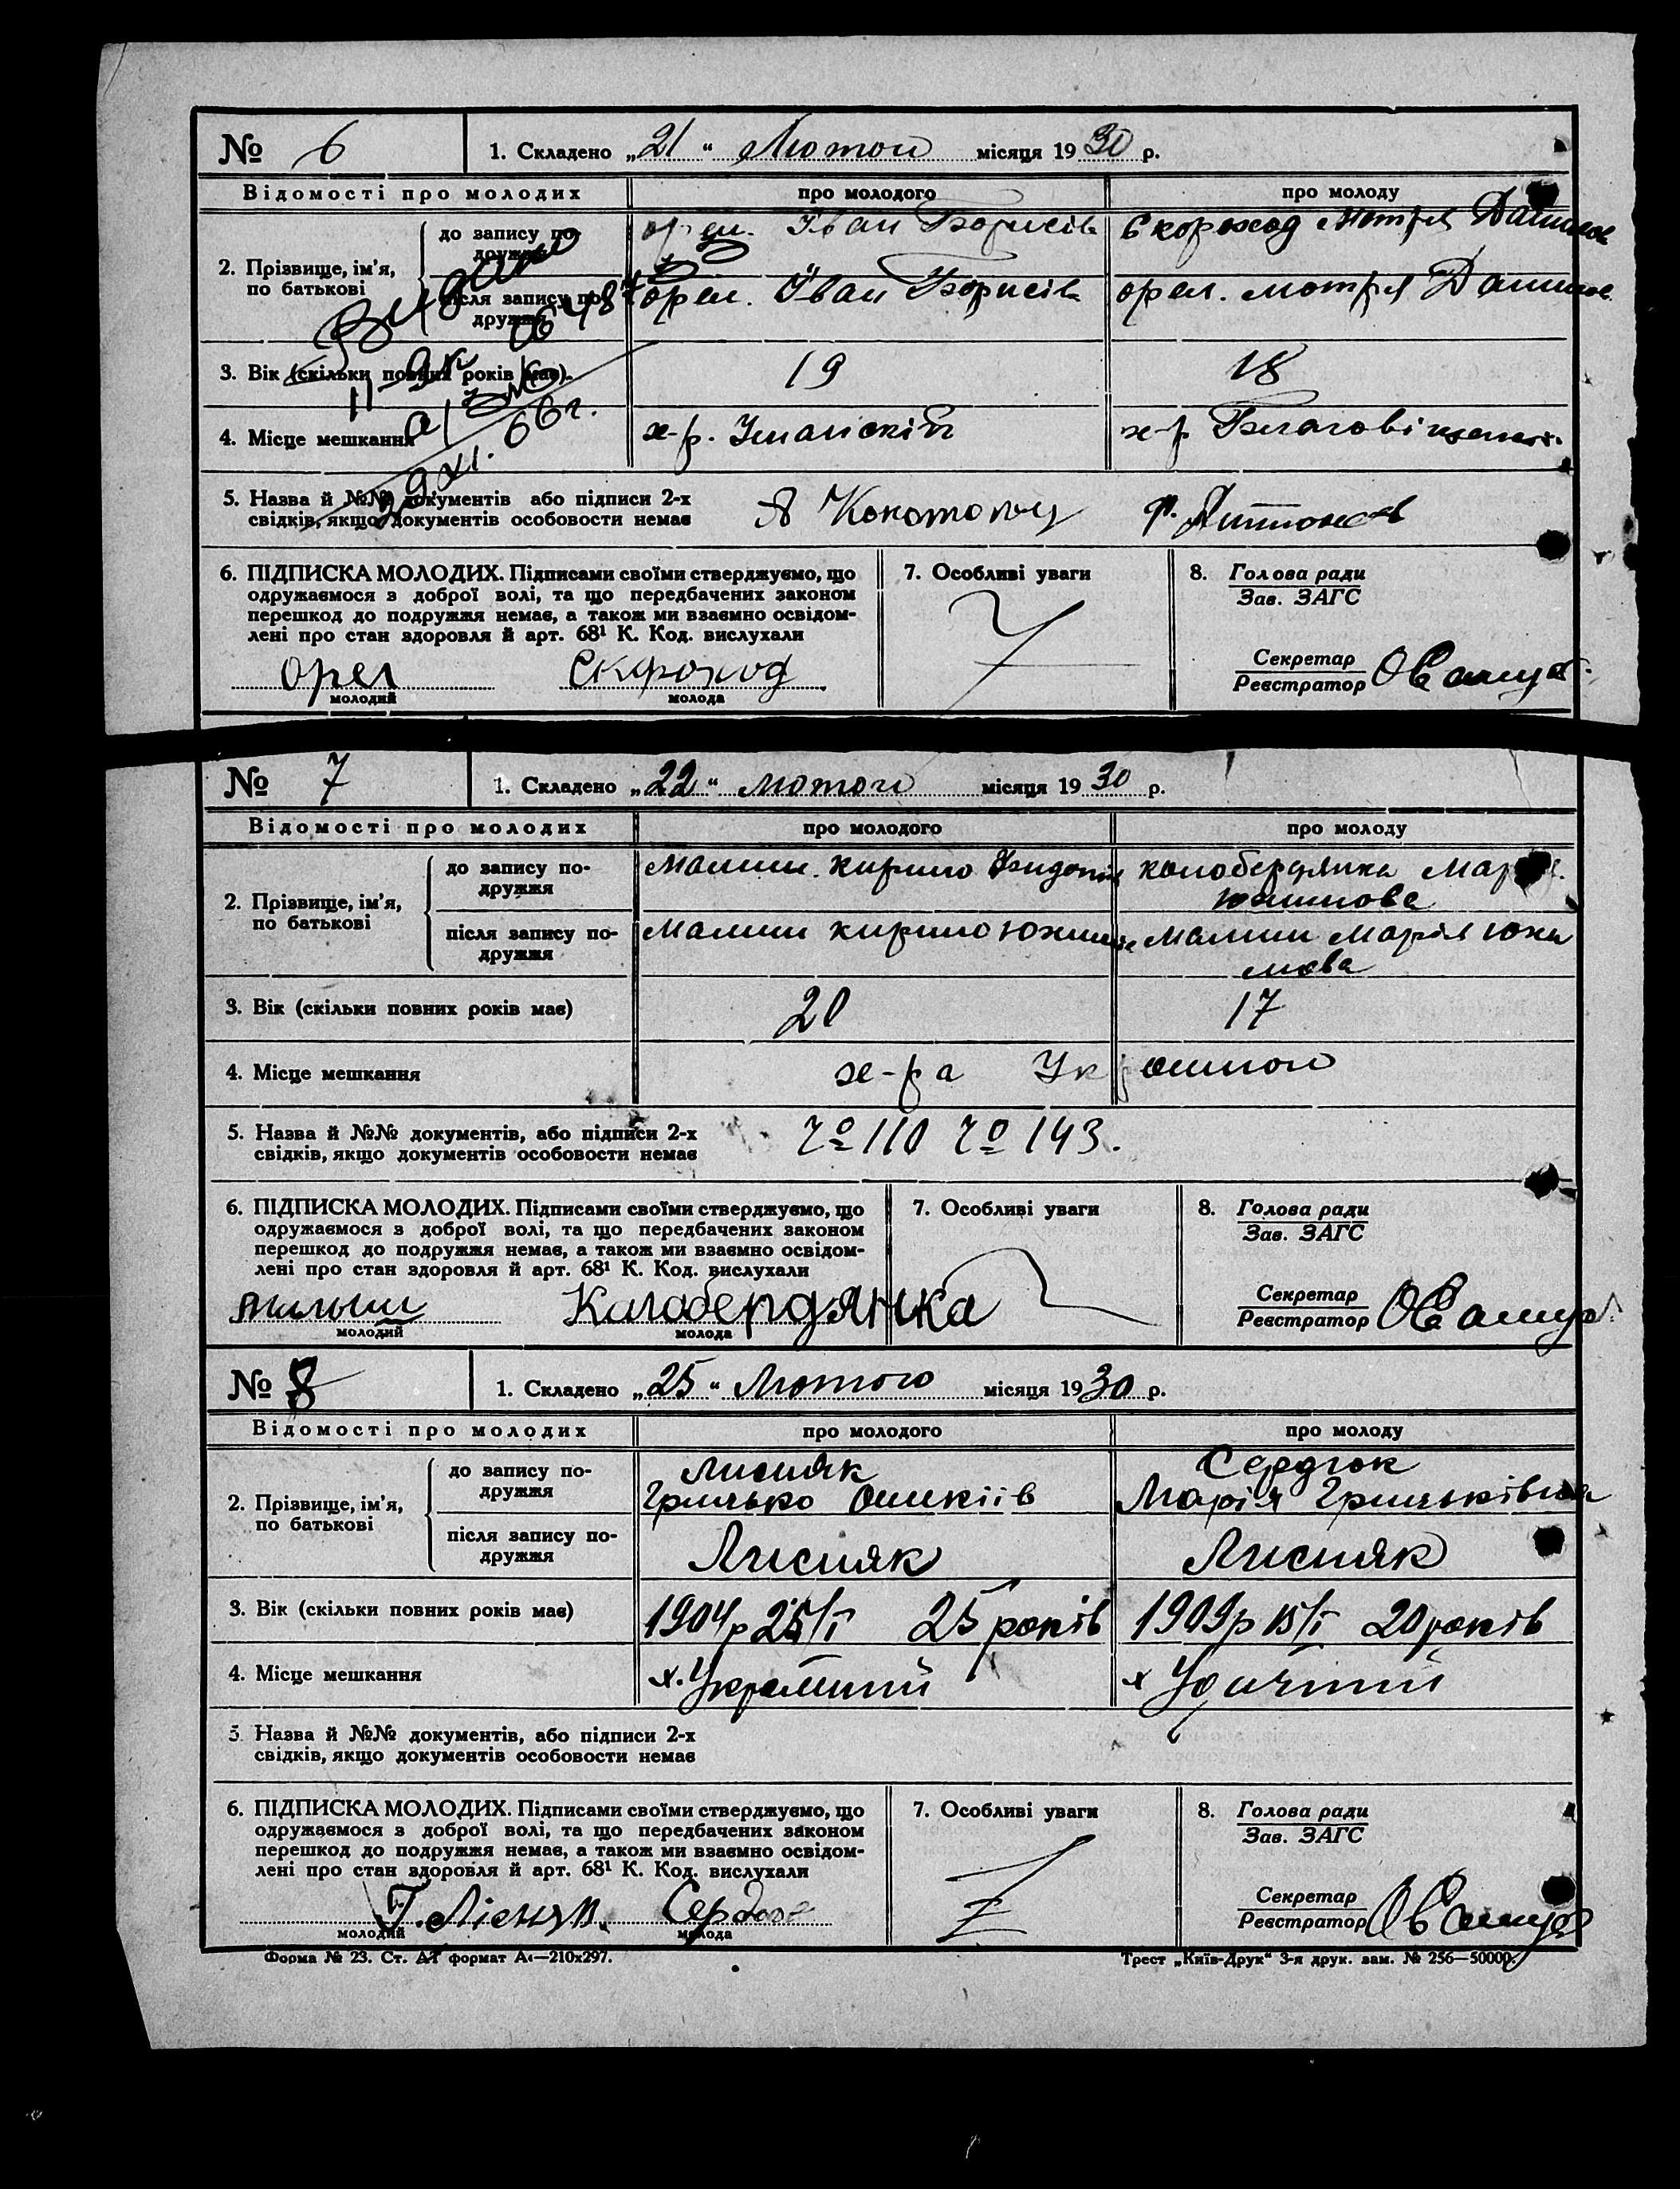 № 6 1. Складено „21“ Лютого місяця 1930 р.
Відомості про молодих про молодого про молоду
2. Прізвище, ім'я, по батькові
до запису по-
дружжя
Орел. Іван Борисів Скороход Мотря Данилов
після запису по-
дружжя
Орел. Іван Борисів Орел. Мотря Данилов.
Видано
3. Вік (скільки повних років має). 19 18
4. Місце мешкання х-р. х-р
29 XI. 66 г.
5. Назва й №№ документів або підписи 2-х
свідків, якщо документів особовости немає
6. ПІДПИСКА МОЛОДИХ. Підписами своїми стверджуємо, що
одружаємося з доброї волі, та що передбачених законом
перешкод до подружжя немає, а також ми взаємно освідом-
лені про стан здоровля й арт. 68¹ К. Код. вислухали
Орел Скороход
молодий молода
7. Особливі уваги
8. Голова ради
Зав. ЗАГС
Секретар
Реєстратор
№ 7 1. Складено „22“ Лютого місяця 1930 р.
Відомості про молодих про молодого про молоду
2. Прізвище, ім'я,
по батькові
до запису по-
дружжя
Малиш. Кирило Колобердянка Марія
Юхимова
після запису по-
дружжя
Малиш Кирило Малиш Марія Юхи
мова
3. Вік (скільки повних років має) 20 17
4. Місце мешкання х-ра
5. Назва й №№ документів, або підписи 2-х
свідків, якщо документів особовости немає
№ 110 № 143.
6. ПІДПИСКА МОЛОДИХ. Підписами своїми стверджуємо, що
одружаємося з доброї волі, та що передбачених законом
перешкод до подружжя немає, а також ми взаємно освідом-
лені про стан здоровля й арт. 68¹ К. Код. вислухали
Малыш Калабердянка
молодий молода
7. Особливі уваги
8. Голова ради
Зав. ЗАГС
Секретар
Реєстратор
№ 8 1. Складено „25“ Лютого місяця 1930 р.
Відомості про молодих про молодого про молоду
2. Прізвище, ім'я,
по батькові
до запису по-
дружжя
Лисняк Сердюк
Грицько Марія Грицьківна
після запису по-
дружжя
Лисняк Лисняк
3. Вік (скільки повних років має) 1904р 25/I 25 років 1909р 15/I 20 років
4. Місце мешкання х. х
5. Назва й №№ документів, або підписи 2-х
свідків, якщо документів особовости немає
6. ПІДПИСКА МОЛОДИХ. Підписами своїми стверджуємо, що
одружаємося з доброї волі, та що передбачених законом
перешкод до подружжя немає, а також ми взаємно освідом-
лені про стан здоровля й арт. 68¹ К. Код. вислухали
Г. Лісняк. Сердюк
молодий молода
7. Особливі уваги
8. Голова ради
Зав. ЗАГС
Секретар
Реєстратор
Форма № 23. Ст. АТ формат А₄—210х297. Трест „Київ-Друк“ 3-я друк. зам. № 256—50000.